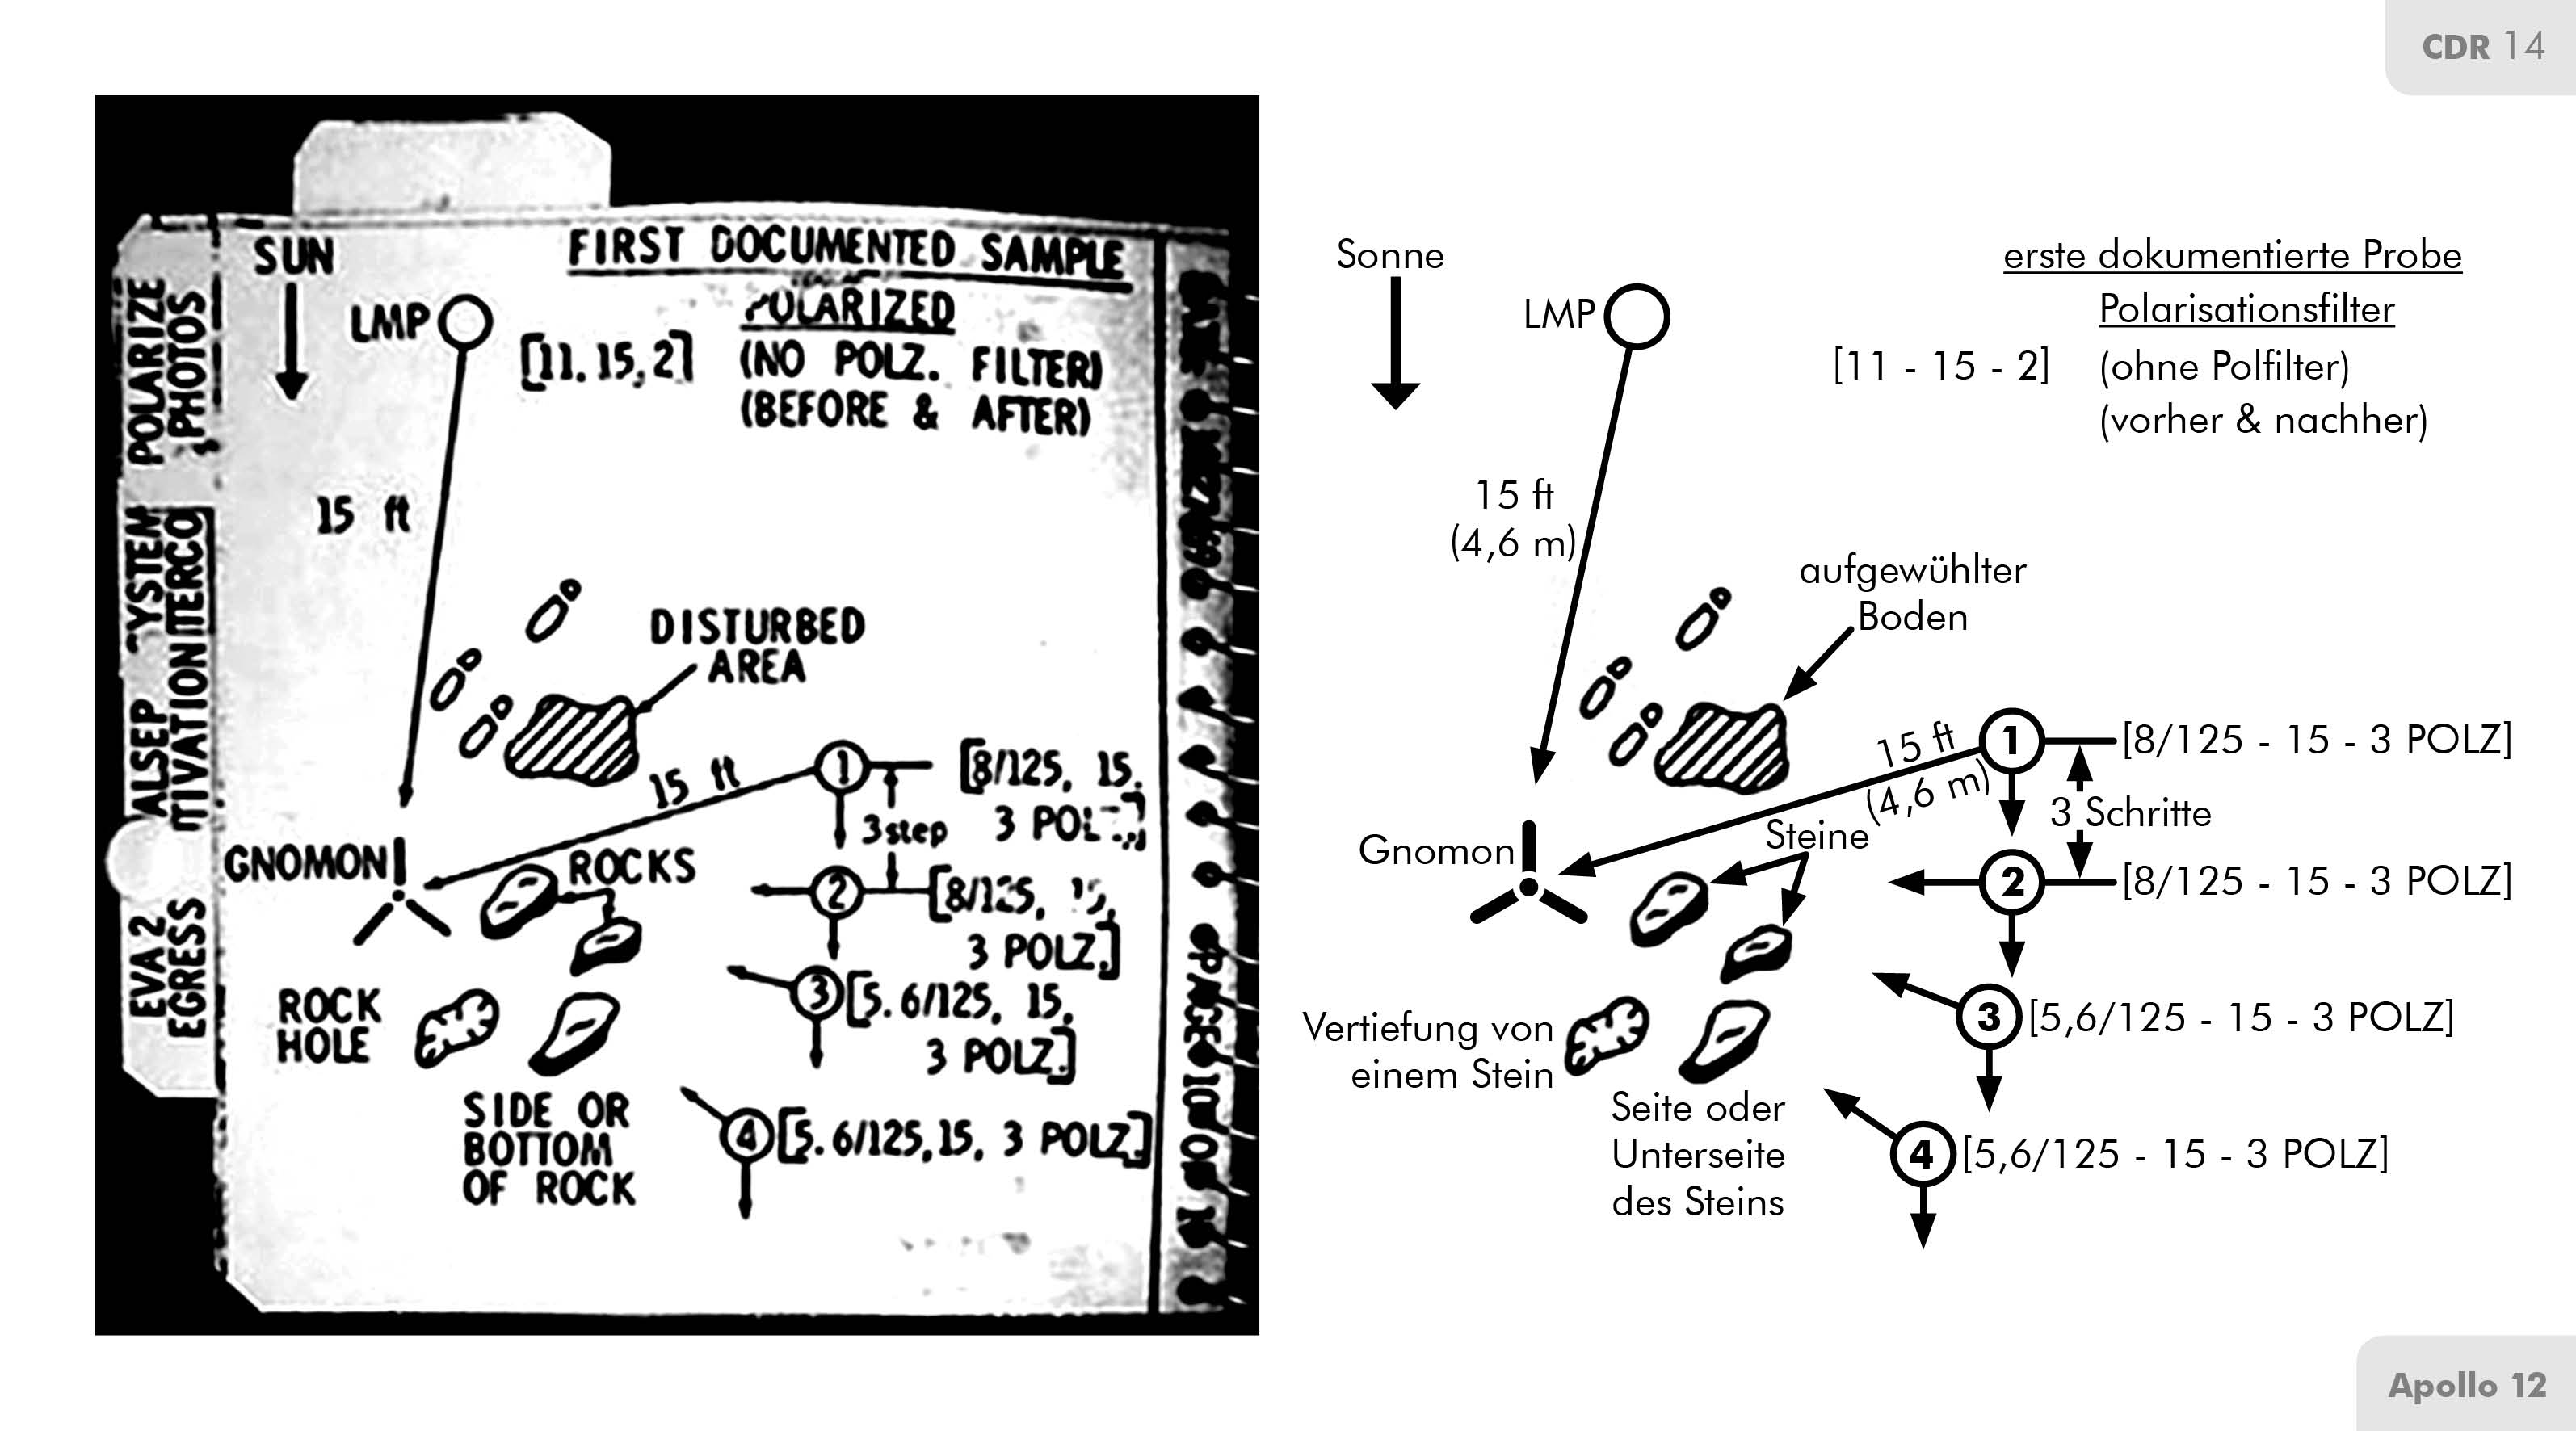 CDR 14
POLARIZE
PHOTOS
ALSEP
EVA 2
EGRESS
SUN
FIRST DOCUMENTED SAMPLE
POLARIZED
LMP
[11. 15, 2]
(NO POLZ. FILTER)
(BEFORE & AFTER)
15 ft
DISTURBED
AREA
15 ft
1
[8/125, 15.
3step
GNOMON
ROCKS
2
3 POLZ.]
3
[5.6/125, 15,
3 POLZ]
ROCK
HOLE
SIDE OR
BOTTOM
OF ROCK
4
[5.6/125, 15, 3 POLZ.]
Sonne
erste dokumentierte Probe
LMP
Polarisationsfilter
[11 - 15 - 2]
(ohne Polfilter)
(vorher & nachher)
15 ft
(4,6 m)
aufgewühlter
Boden
15 ft
(4,6 m)
1
[8/125 - 15 - 3 POLZ]
3 Schritte
Steine
Gnomon
2
[8/125 - 15 - 3 POLZ]
3
[5,6/125 - 15 - 3 POLZ]
Vertiefung von
einem Stein
Seite oder
Unterseite
des Steins
4
[5,6/125 - 15 - 3 POLZ]
Apollo 12